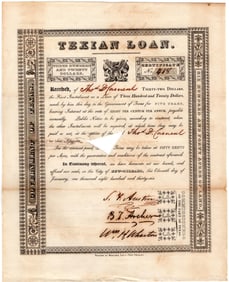 TEXIAN LOAN.
AND TWENTY
DOLLARS.
CERTIFICATE
No.
Received, of Thos. D. Carneal THIRTY-TWO DOLLARS,
the First Instalment on a Loan of Three Hundred and Twenty Dollars,
made by him this day to the Government of Texas for FIVE YEARS,
bearing Interest at the rate of EIGHT PER CENTUM PER ANNUM, payable
annually. Public Notice to be given, according to contract, when
the other Instalments will be required, at which time they must be
paid or not, at the option of the Thos. D. Carneal
or his
at FIFTY CENTS
per Acre, with the guarantees and conditions of the contract
In Testimony whereof, we have hereunto set our hands, and
affixed our seals, at the City of NEW-ORLEANS, the Eleventh day of
January, one thousand eight hundred and thirty-six.
S. F. Austin
B. T. Archer
Wm. H. Wharton